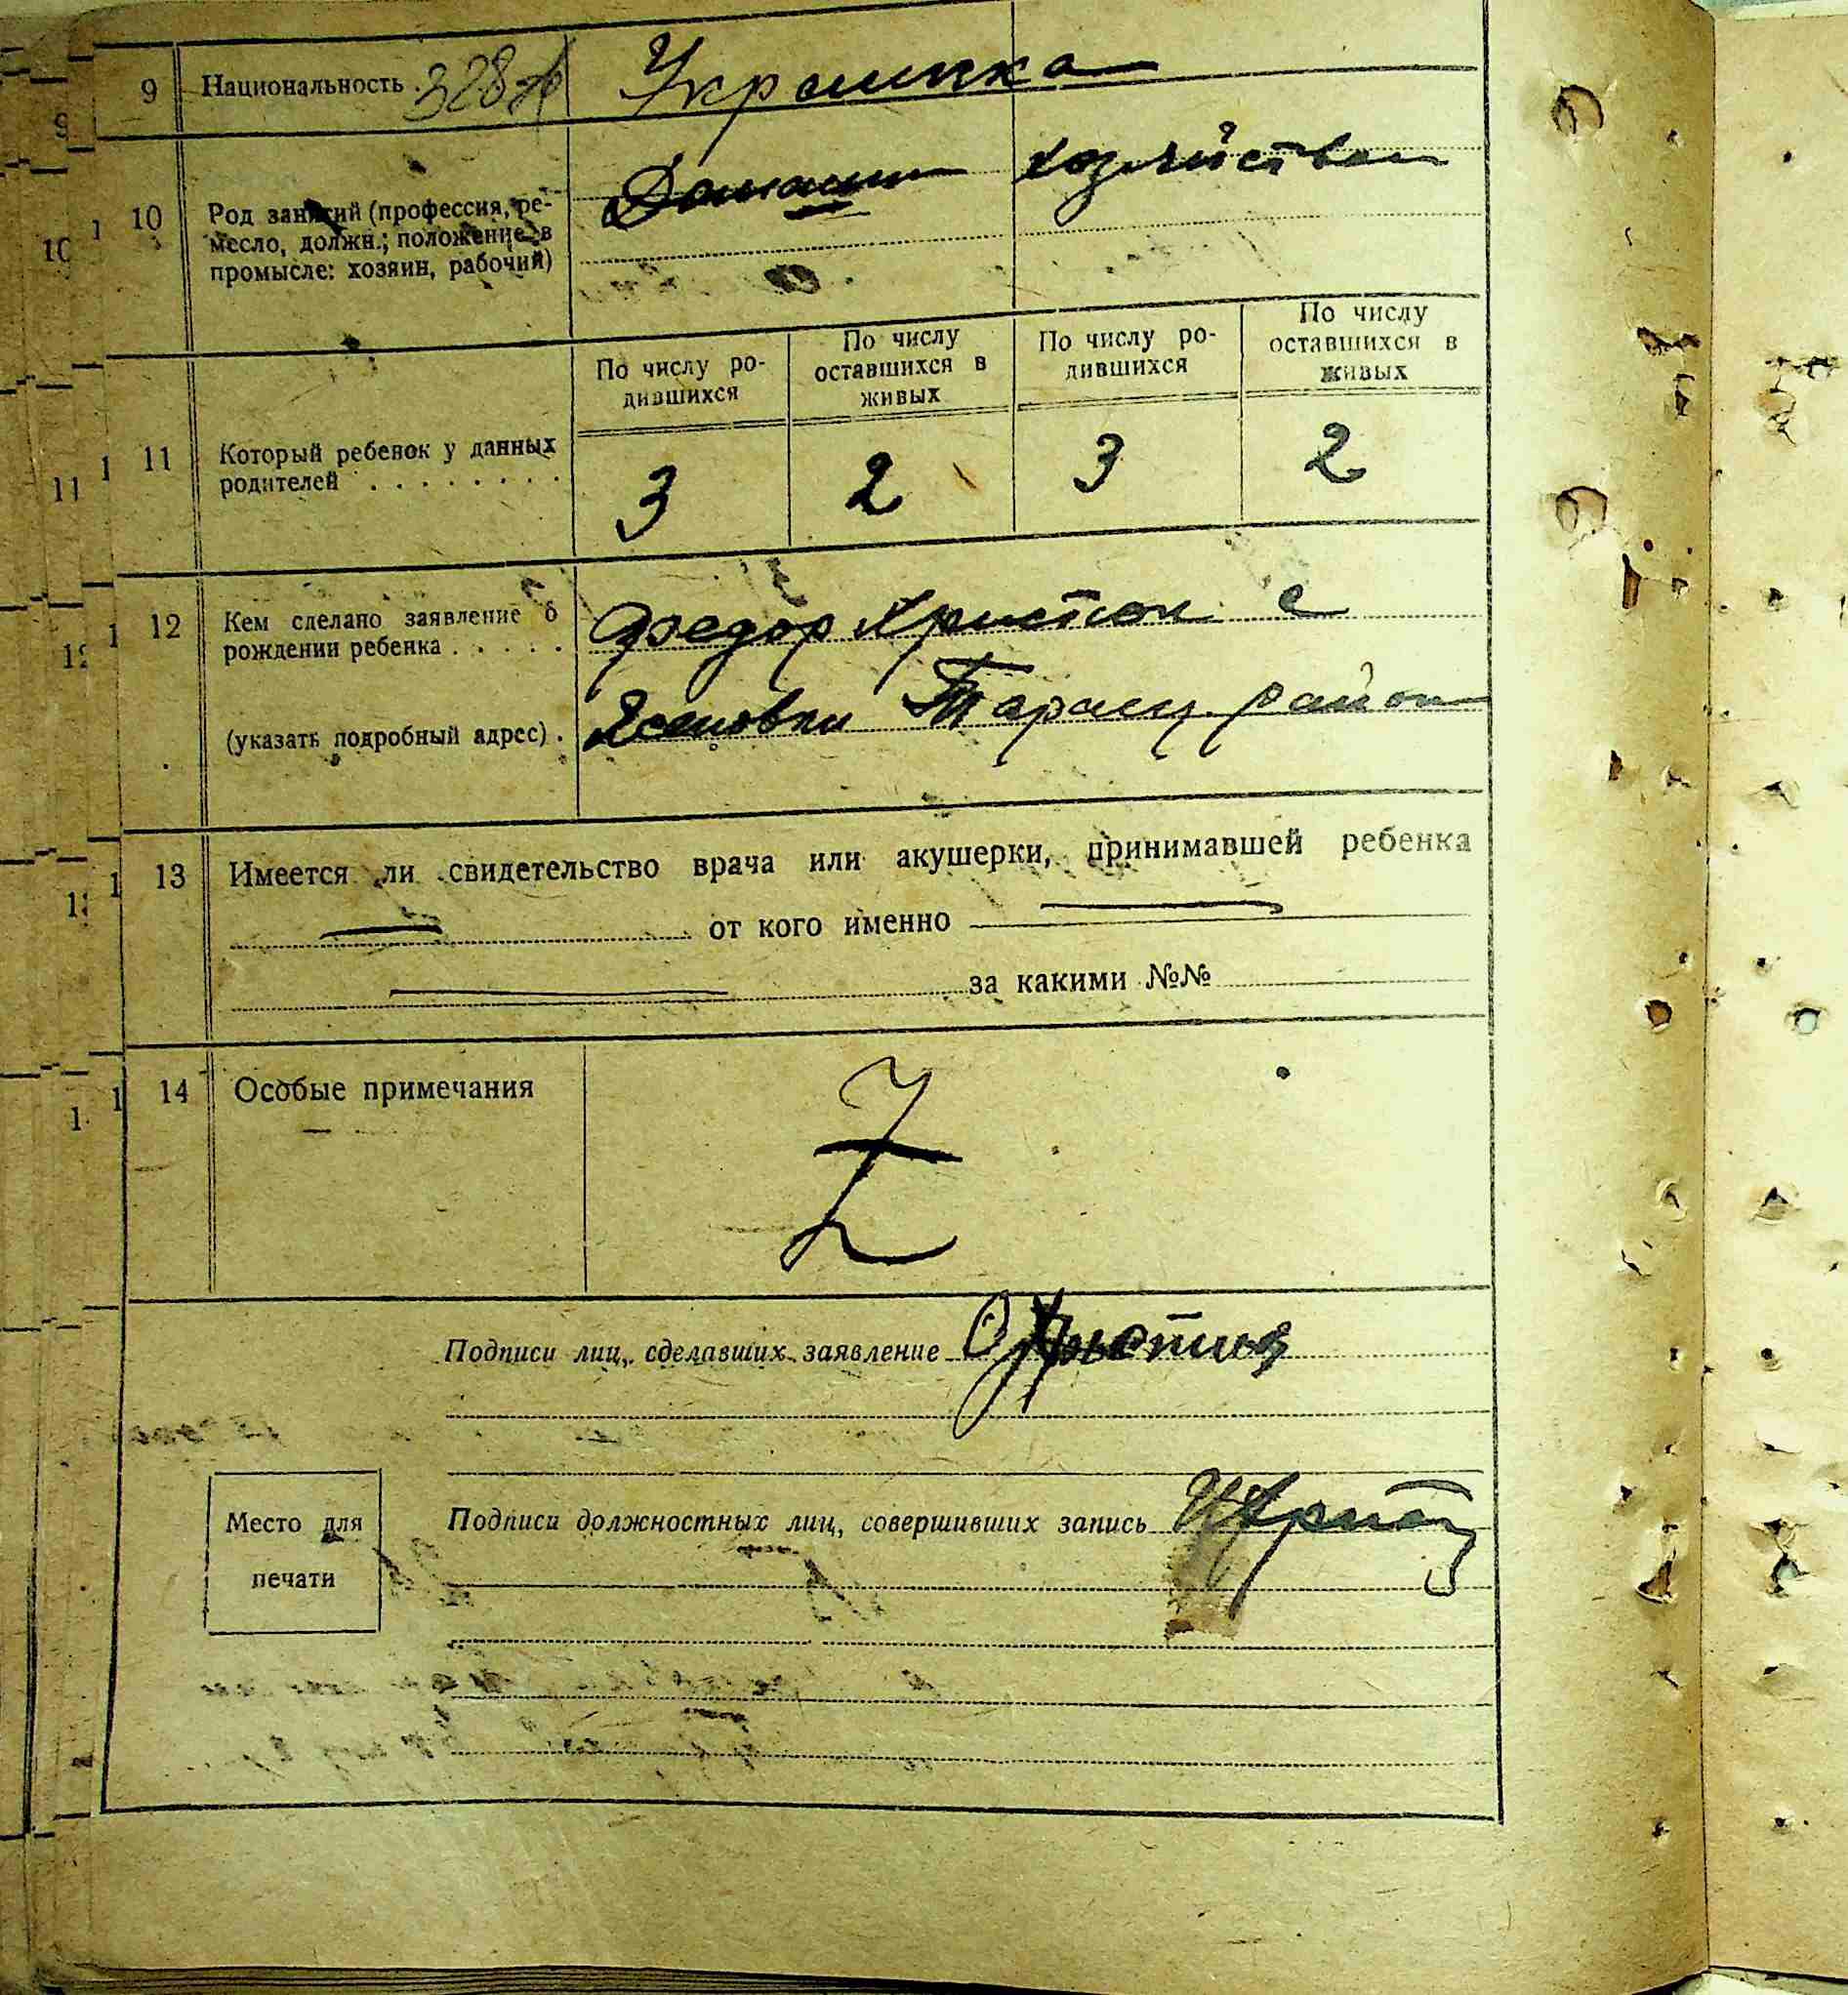 9 Национальность . 328 Украинка
10 Род занятий (профессия, ре-
месло, должн.; положение в
промысле: хозяин, рабочий)
Домашн хозяйством
По числу ро-
дившихся
По числу
оставшихся в
живых
По числу ро-
дившихся
По числу
оставшихся в
живых
11 Который ребенок у данных
родителей . . . . . . . .
3 2 3 2
12 Кем сделано заявление о
рождении ребенка . . . . .
Федор Христюк с
(указать подробный адрес) .
Есеновки Таращ. район
13 Имеется ли свидетельство врача или акушерки, принимавшей ребенка
от кого именно
за какими №№
14 Особые примечания
Z
Подписи лиц, сделавших заявление
Место для
печати
Подписи должностных лиц, совершивших запись